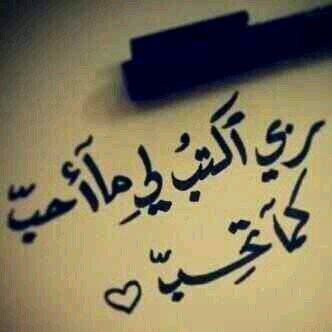 ربي أكتبُ لي مآأحبّ
كمآ تحبّ ♡